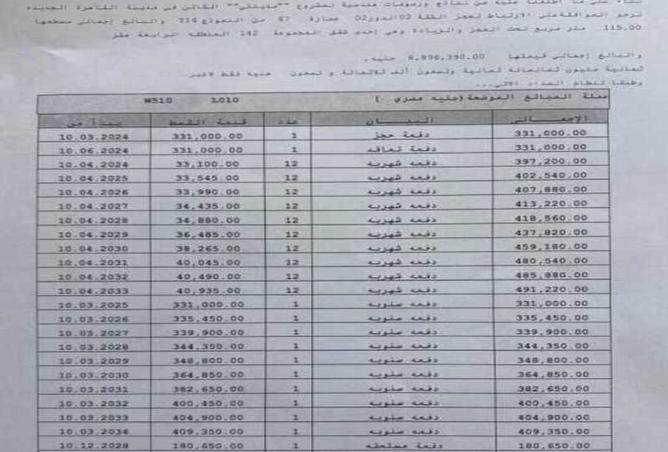 بناء على ما اطلعنا عليه من نماذج ورسومات هندسية لمشروع "مدينتي" الكائن في مدينة القاهرة الجديدة
نرجو الموافقة على الارتباط لحجز الشقة 02 الدور 02 عمارة 67 من النموذج 214 والبالغ إجمالي مسطحها
115.00 متر مربع تحت العجز والزيادة وهي إحدى شقق المجموعة 142 المنطقة الرابعة عشر
والبالغ إجمالي قيمتها 8,898,390.00 جنيه,
ثمانية مليون ثمانمائة ثمانية وتسعون ألف ثلاثمائة و تسعون جنيه فقط لاغير
وطبقا لنظام السداد الآتي...
عملة المبالغ الموضحة (جنيه مصري ) 1010 W510
الإجمالي البيان عدد قيمة القسط يبدأ من
331,000.00 دفعة حجز 1 331,000.00 10.03.2024
331,000.00 دفعة تعاقد 1 331,000.00 10.06.2024
397,200.00 دفعه شهريه 12 33,100.00 10.04.2024
402,540.00 دفعه شهريه 12 33,545.00 10.04.2025
407,880.00 دفعه شهريه 12 33,990.00 10.04.2026
413,220.00 دفعه شهريه 12 34,435.00 10.04.2027
418,560.00 دفعه شهريه 12 34,880.00 10.04.2028
437,820.00 دفعه شهريه 12 36,485.00 10.04.2029
459,180.00 دفعه شهريه 12 38,265.00 10.04.2030
480,540.00 دفعه شهريه 12 40,045.00 10.04.2031
485,880.00 دفعه شهريه 12 40,490.00 10.04.2032
491,220.00 دفعه شهريه 12 40,935.00 10.04.2033
331,000.00 دفعه سنويه 1 331,000.00 10.03.2025
335,450.00 دفعه سنويه 1 335,450.00 10.03.2026
339,900.00 دفعه سنويه 1 339,900.00 10.03.2027
344,350.00 دفعه سنويه 1 344,350.00 10.03.2028
348,800.00 دفعه سنويه 1 348,800.00 10.03.2029
364,850.00 دفعه سنويه 1 364,850.00 10.03.2030
382,650.00 دفعه سنويه 1 382,650.00 10.03.2031
400,450.00 دفعه سنويه 1 400,450.00 10.03.2032
404,900.00 دفعه سنويه 1 404,900.00 10.03.2033
409,350.00 دفعه سنويه 1 409,350.00 10.03.2034
180,650.00 دفعة مستحقه 1 180,650.00 10.12.2028